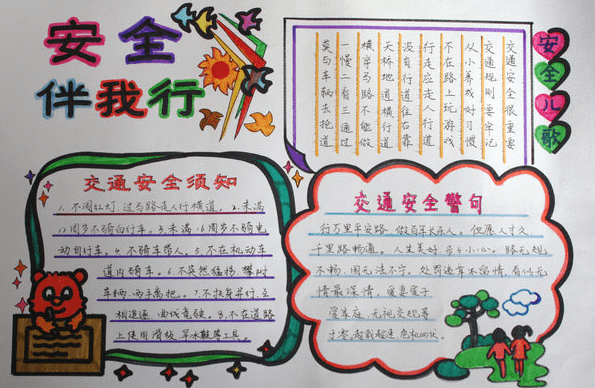 安全
伴我行
安全儿歌
交通安全很重要
交通规则要牢记
从小养成好习惯
不在路上玩游戏
行走应走人行道
没有行道往右靠
天桥地道横行道
横穿马路不能做
一慢二看三通过
莫与车辆去抢道
交通安全须知
1.不闯红灯,过马路走人行横道。2.未满
12周岁不骑自行车。3.未满16周岁不骑电
动自行车。4.不骑车带人。5.不在机动车
道内骑车。6.不突然猛拐,攀扶
车辆,两手离把。7.不扶身并行,互
相追逐,曲线竞驶。8.不在道路
上使用滑板,旱冰鞋等工具。
交通安全警句
行万里平安路,做百年长在人。但愿人长久
千里路畅通。人生美好,步步小心。路无规
不畅,国无法不宁。处罚违章不留情,看似无
情最深情。爱妻爱子
爱家庭,无视交规等
于零。超载超速,危机四伏。